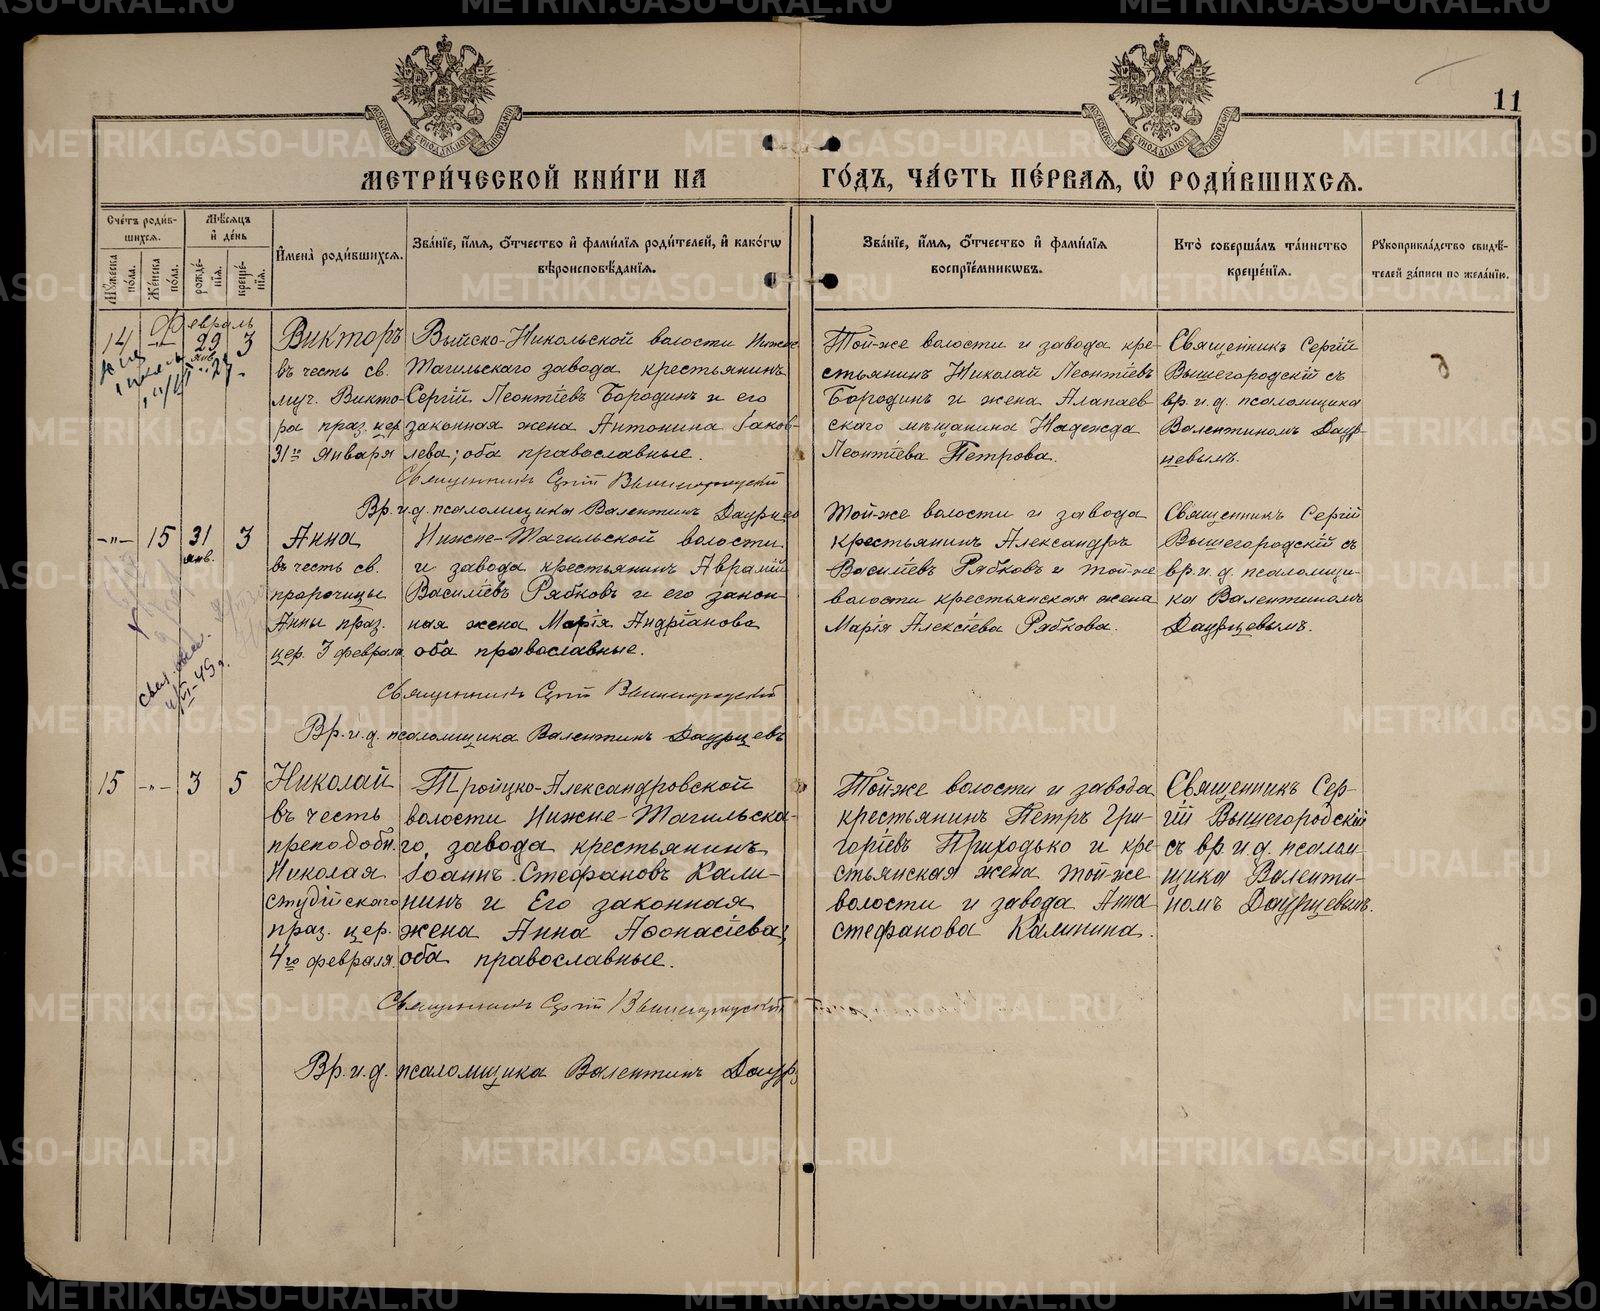 11
МЕТРИ́ЧЕСКОЙ КНИ́ГИ НА
ГО́ДЪ, ЧА́СТЬ ПЕ́РВАѦ, Ѡ҆ РОДИ́ВШИХСѦ.
Сче́тъ роди́в-
шихсѧ.
Мѣ́сѧцъ
и҆ де́нь
И҆мена̀ роди́вшихсѧ.
Зва́нїе, и҆́мѧ, ѻ҆́тчество и҆ фами́лїѧ роди́телей, и҆ како́гѡ
вѣроисповѣ́данїѧ.
Зва́нїе, и҆́мѧ, ѻ҆́тчество и҆ фами́лїѧ
воспрїе́мникѡвъ.
Кто̀ соверша́лъ та́инство
креще́нїѧ.
Рꙋкоприкла́дство свидѣ́-
телей за́писи по жела́нїю.
Мꙋ́жеска
по́ла.
Же́нска
по́ла.
рожде́-
нїѧ.
креще́-
нїѧ.
Февраль
14 -"- 29 3
янв.
Викторъ
въ честь св.
муч. Викто-
ра праз. цер.
31го января
Выйско-Никольской волости Нижне-
Тагильскаго завода крестьянинъ
Сергій Леонтіевъ Бородинъ и его
законная жена Антонина Іаков-
лева; оба православные.
Священникъ Сергій Вышегородскій
Вр. и. д. псаломщика Валентинъ Даурцев
Той-же волости и завода кре-
стьянинъ Николай Леонтіевъ
Бородинъ и жена Алапаев-
скаго мѣщанина Надежда
Леонтіева Петрова.
Священникъ Сергій
Вышегородскій съ
вр. и. д. псаломщика
Валентиномъ Даур-
цевымъ.
-"- 15 31 3
янв.
Анна
въ честь св.
пророчицы
Анны праз.
цер. 3 февраля
Нижне-Тагильской волости
и завода крестьянинъ Аврамій
Василіевъ Рябковъ и его закон-
ная жена Марія Андріанова
оба православные.
Священникъ Сергій Вышегородскій
Вр. и. д. псаломщика Валентинъ Даурцевъ
Той-же волости и завода
крестьянинъ Александръ
Василіевъ Рябковъ и той-же
волости крестьянская жена
Марія Алексіева Рябкова.
Священникъ Сергій
Вышегородскій съ
вр. и. д. псаломщи-
ка Валентиномъ
Даурцевымъ.
15 -"- 3 5
Николай
въ честь
преподобн.
Николая
студійскаго
праз. цер.
4го февраля.
Тройцко-Александровской
волости Нижне-Тагильска-
го завода крестьянинъ
Іоаннъ Стефановъ Кали-
нинъ и Его законная
жена Анна Аѳонасіева;
оба православные.
Священникъ Сергій Вышегородскій
Вр. и. д. псаломщика Валентинъ Даур.
Той-же волости и завода
крестьянинъ Петръ Гри-
горіевъ Приходько и кре-
стьянская жена той-же
волости и завода Анна
стефанова Калинина.
Священникъ Сер-
гій Вышегородскій
съ вр. и. д. псалом-
щика Валенти-
номъ Даурцевымъ.
METRIKI.GASO-URAL.RU